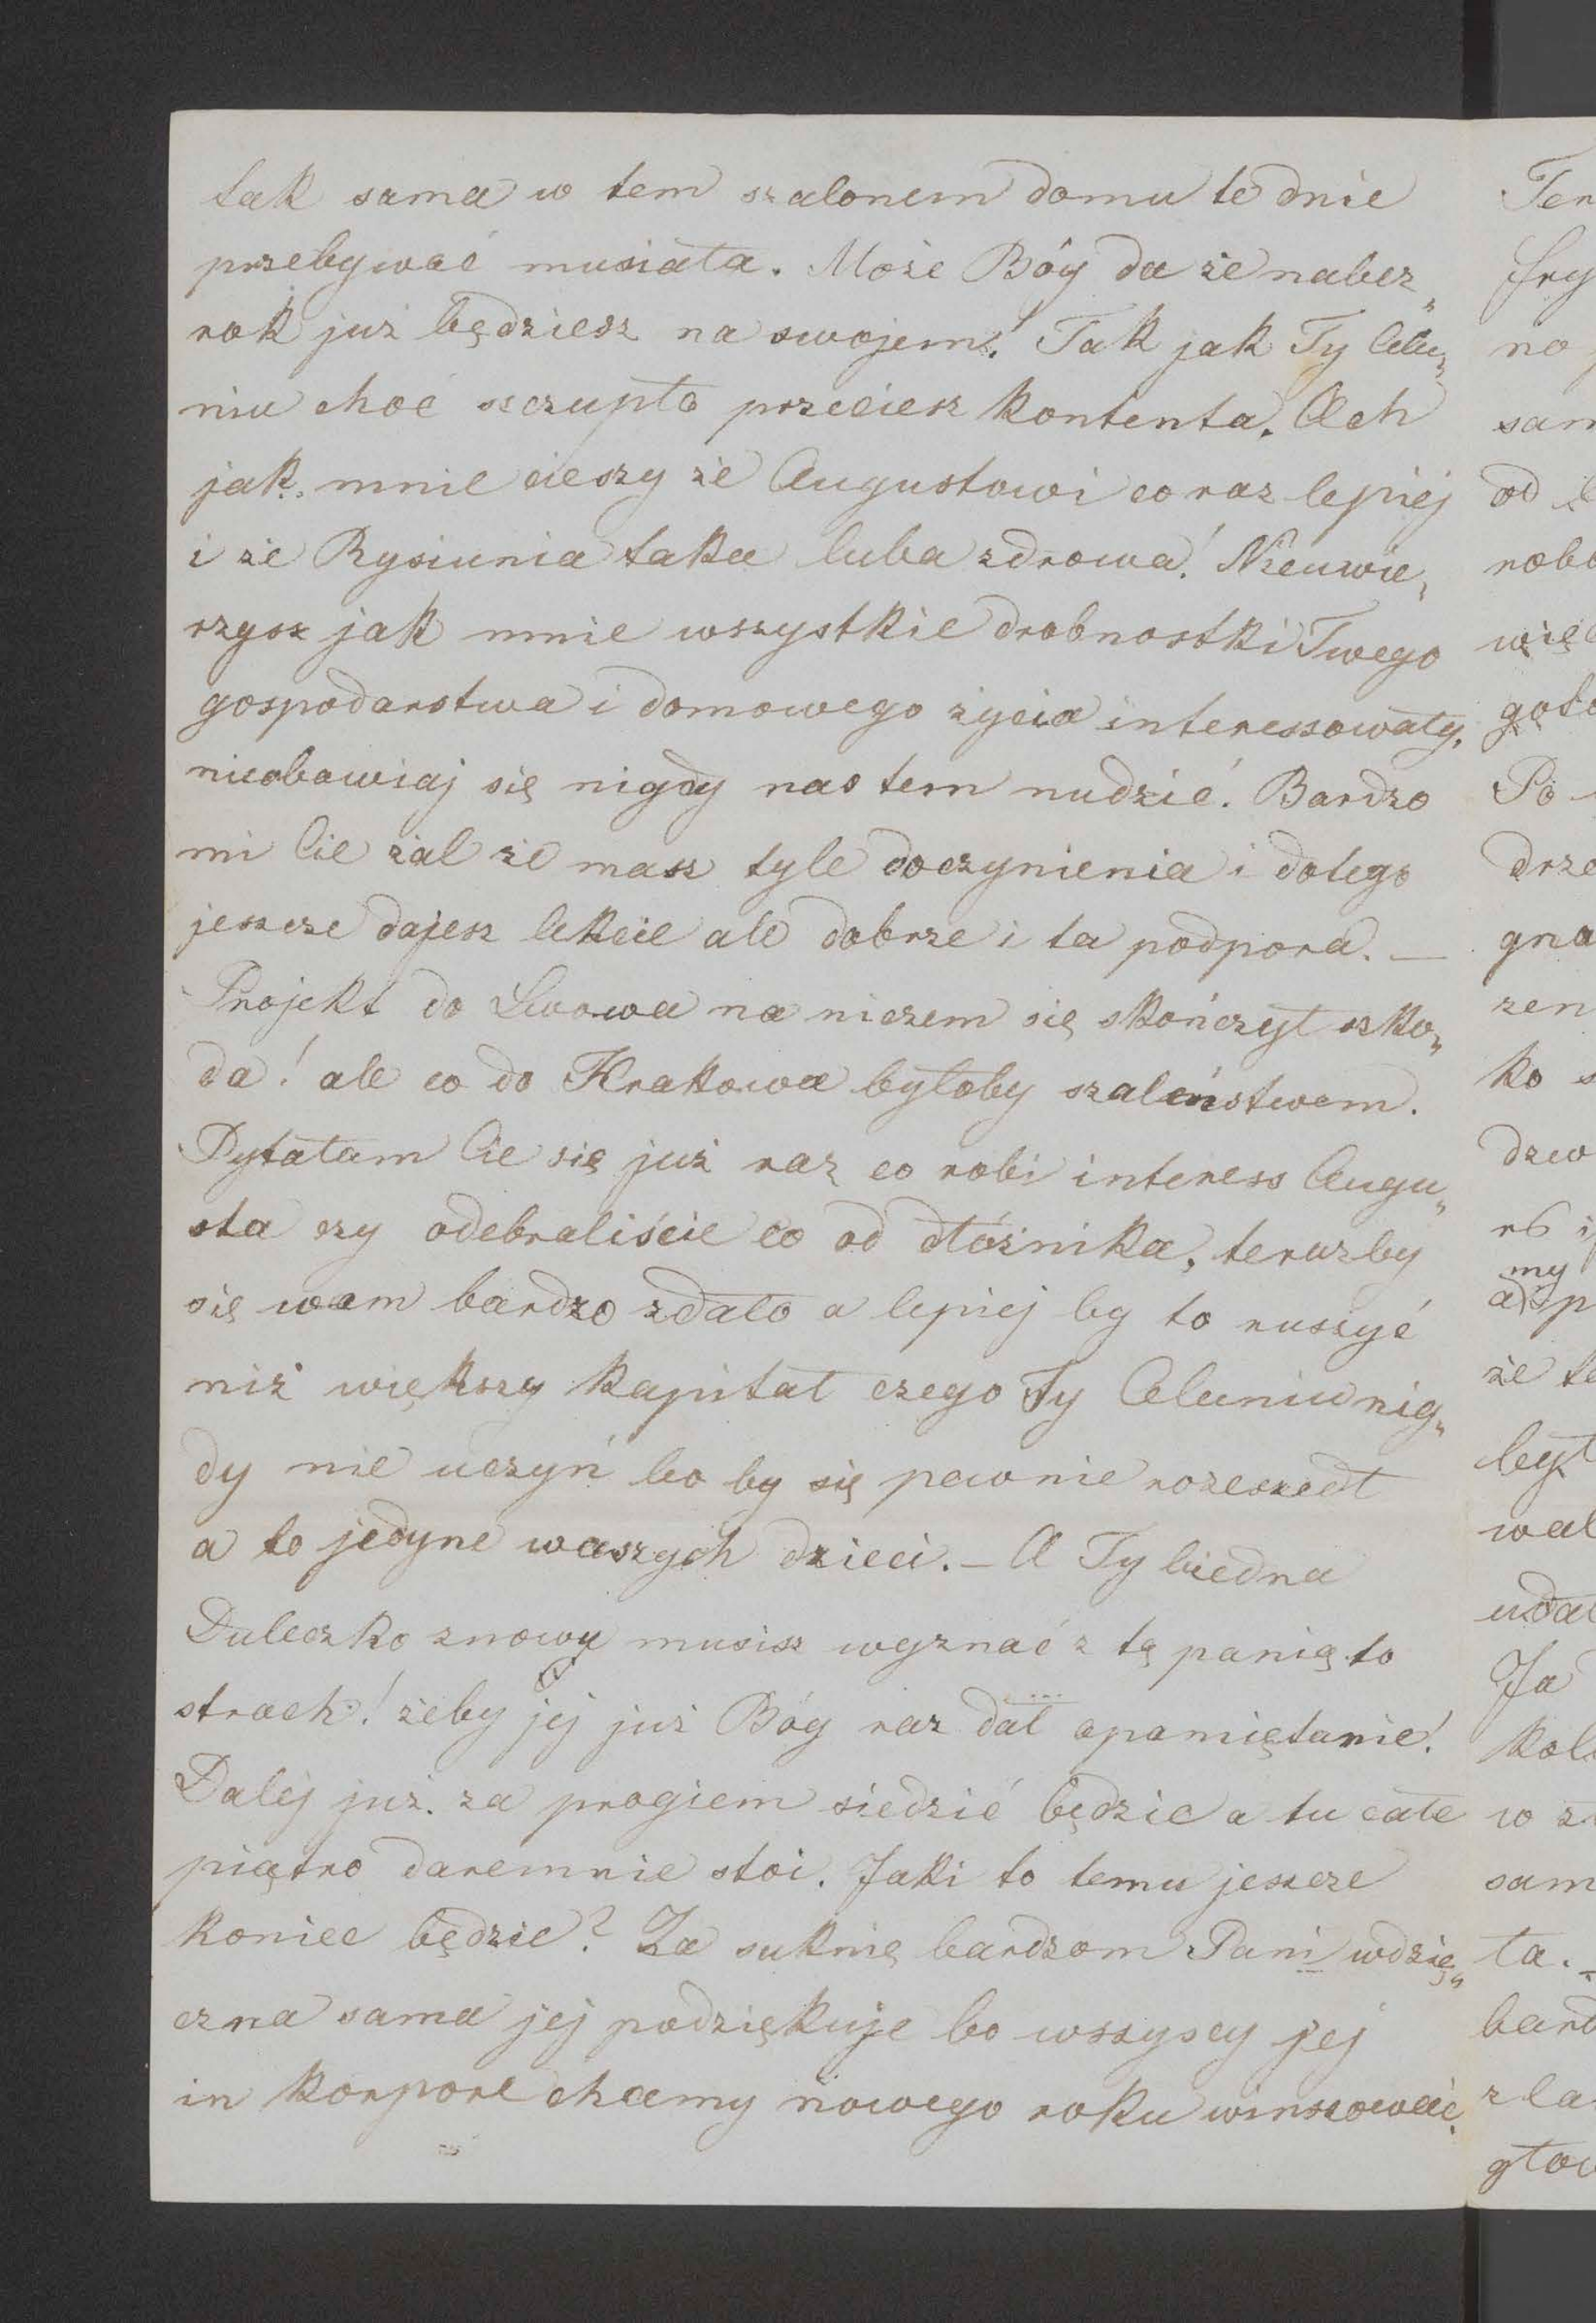 tak sama w tem szalonem domu te dnie
przebywać musiała. Może Bóg da że nabez„
rok już będziesz na swojem! Tak jak Ty Celu„
niu choć szczupło przeciesz kontenta. Ach
jak mnie cieszy że Augustowi co raz lepiej
i że Rysiunia taka luba zdrowa! Nieuwie„
rzysz jak mnie wszystkie drobnostki Twego
gospodarstwa i domowego życia interessowały,
nieobawiaj się nigdy nas tem nudzić. Bardzo
mi Cie żal że masz tyle doczynienia i dotego
jeszcze dajesz lekcie ale dobrze i ta podpora. —
Projekt do Lwowa na niczem się skończył szko„
da! ale co do Krakowa byłoby szaleństwem.
Pytałam Cie się już raz co robi interess Augu„
sta czy odebraliście co od dłóżnika, terazby
się wam bardzo zdało a lepiej by to ruszyć
niż większy kapitał czego Ty Celuniu nig„
dy nie uczyń bo by się pewnie rozeszedł
a to jedyne waszych dzieci. — A Ty biedna
Duleczko znowy musisz wyznać z tę panię to
strach! żeby jej już Bóg raz dał opamiętanie!
Dalej już za progiem siedzić będzie a tu całe
piątro daremnie stoi. Jaki to temu jeszcze
koniec będzie? Za suknię bardzom Pani wdzię„
czna sama jej podziękuje bo wszyscy jej
in korpore chcemy nowego roku winszować.